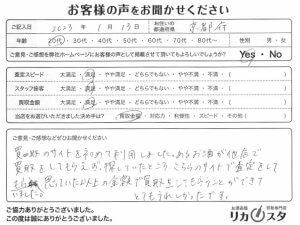 お客様の声をお聞かせください
ご記入日 2023年 1月 13日 お住いの都道府県 京都府
年齢 20代 30代 40代 50代 60代 70代 80代〜 性別 男・女
ご意見・ご感想を弊社ホームページにお客様の声として掲載させて頂いてもよろしいでしょうか? Yes・No
査定スピード 大満足・満足・どちらでもない・やや不満・不満・不満
スタッフ接客 大満足・満足・どちらでもない・やや不満・不満・不満
買取金額 大満足・満足・どちらでもない・やや不満・不満・不満
当店をお選びいただきました決め手は? 買取金額・対応力・利便性・スピード・その他( )
ご意見・ご感想などぜひお聞かせください。
買取のサイトを初めて利用しました。あるお酒が他店で
買取をしてもらえず、探していたところこちらのサイトで査定をして
思っていた以上の金額で買取をしてもらうことができて
とてもうれしかったです。
ご協力ありがとうございました。
この度は誠にありがとうございました。
お酒買取専門店
リカスタ